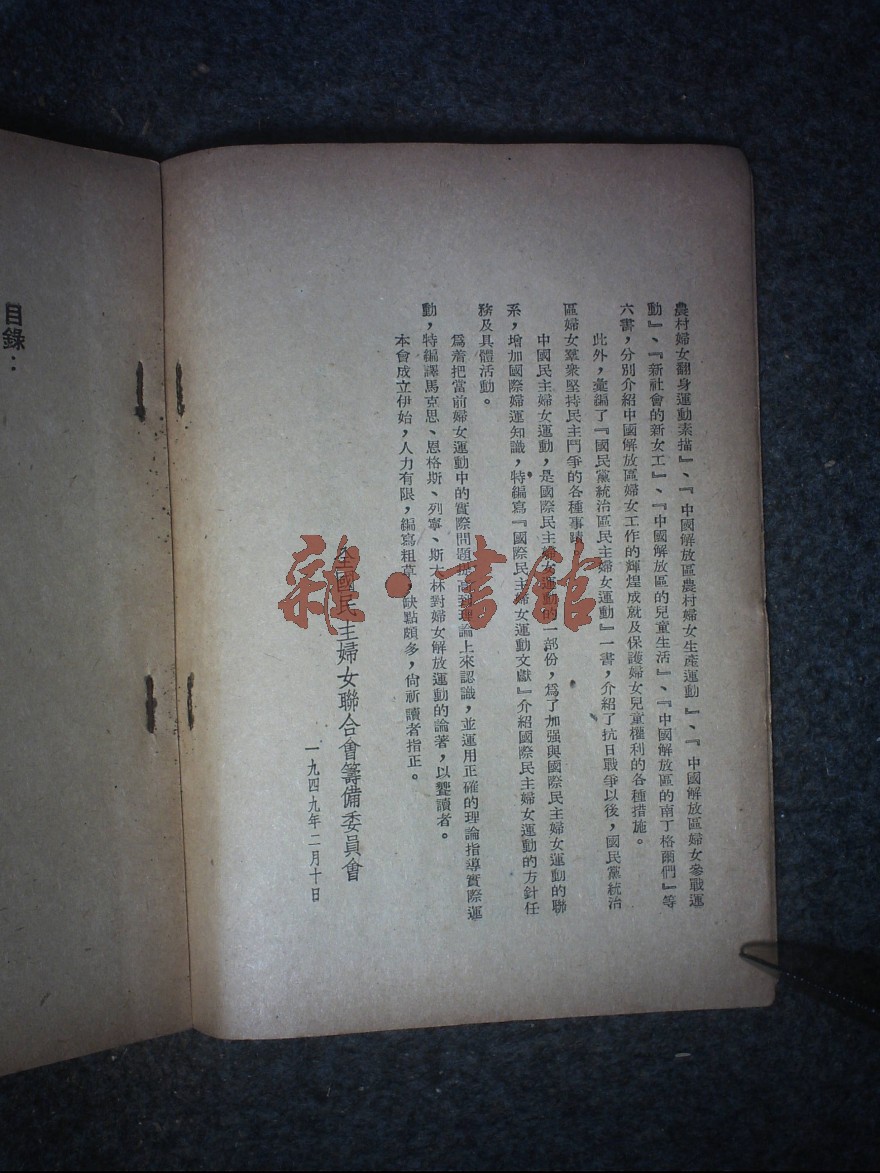 農村婦女翻身運動素描』、『中國解放區農村婦女生產運動』、『中國解放區婦女參戰運
動』、『新社會的新女工』、『中國解放區的兒童生活』、『中國解放區的南丁格爾們』等
六書，分別介紹中國解放區婦女工作的輝煌成就及保護婦女兒童權利的各種措施。
此外，彙編了『國民黨統治區民主婦女運動』一書，介紹了抗日戰爭以後，國民黨統治
區婦女羣衆堅持民主鬥爭的各種事蹟。
中國民主婦女運動，是國際民主婦女運動的一部份，爲了加强與國際民主婦女運動的聯
系，增加國際婦運知識，特編寫『國際民主婦女運動文獻』介紹國際民主婦女運動的方針任
務及具體活動。
爲着把當前婦女運動中的實際問題提高到理論上來認識，並運用正確的理論指導實際運
動，特編譯馬克思、恩格斯、列寧、斯大林對婦女解放運動的論著，以饗讀者。
本會成立伊始，人力有限，編寫粗草，缺點頗多，尙祈讀者指正。
全國民主婦女聯合會籌備委員會
一九四九年二月十日
目錄：
雜·書館